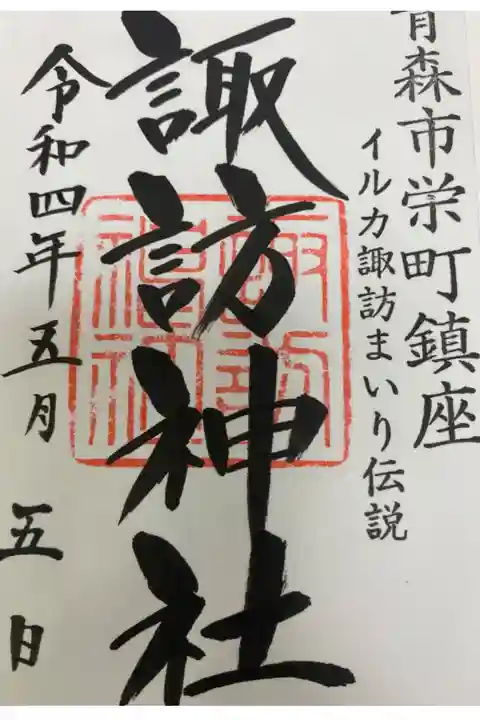 青森市栄町鎮座
イルカ諏訪まいり伝説
諏訪神社
諏訪神社
令和四年五月五日